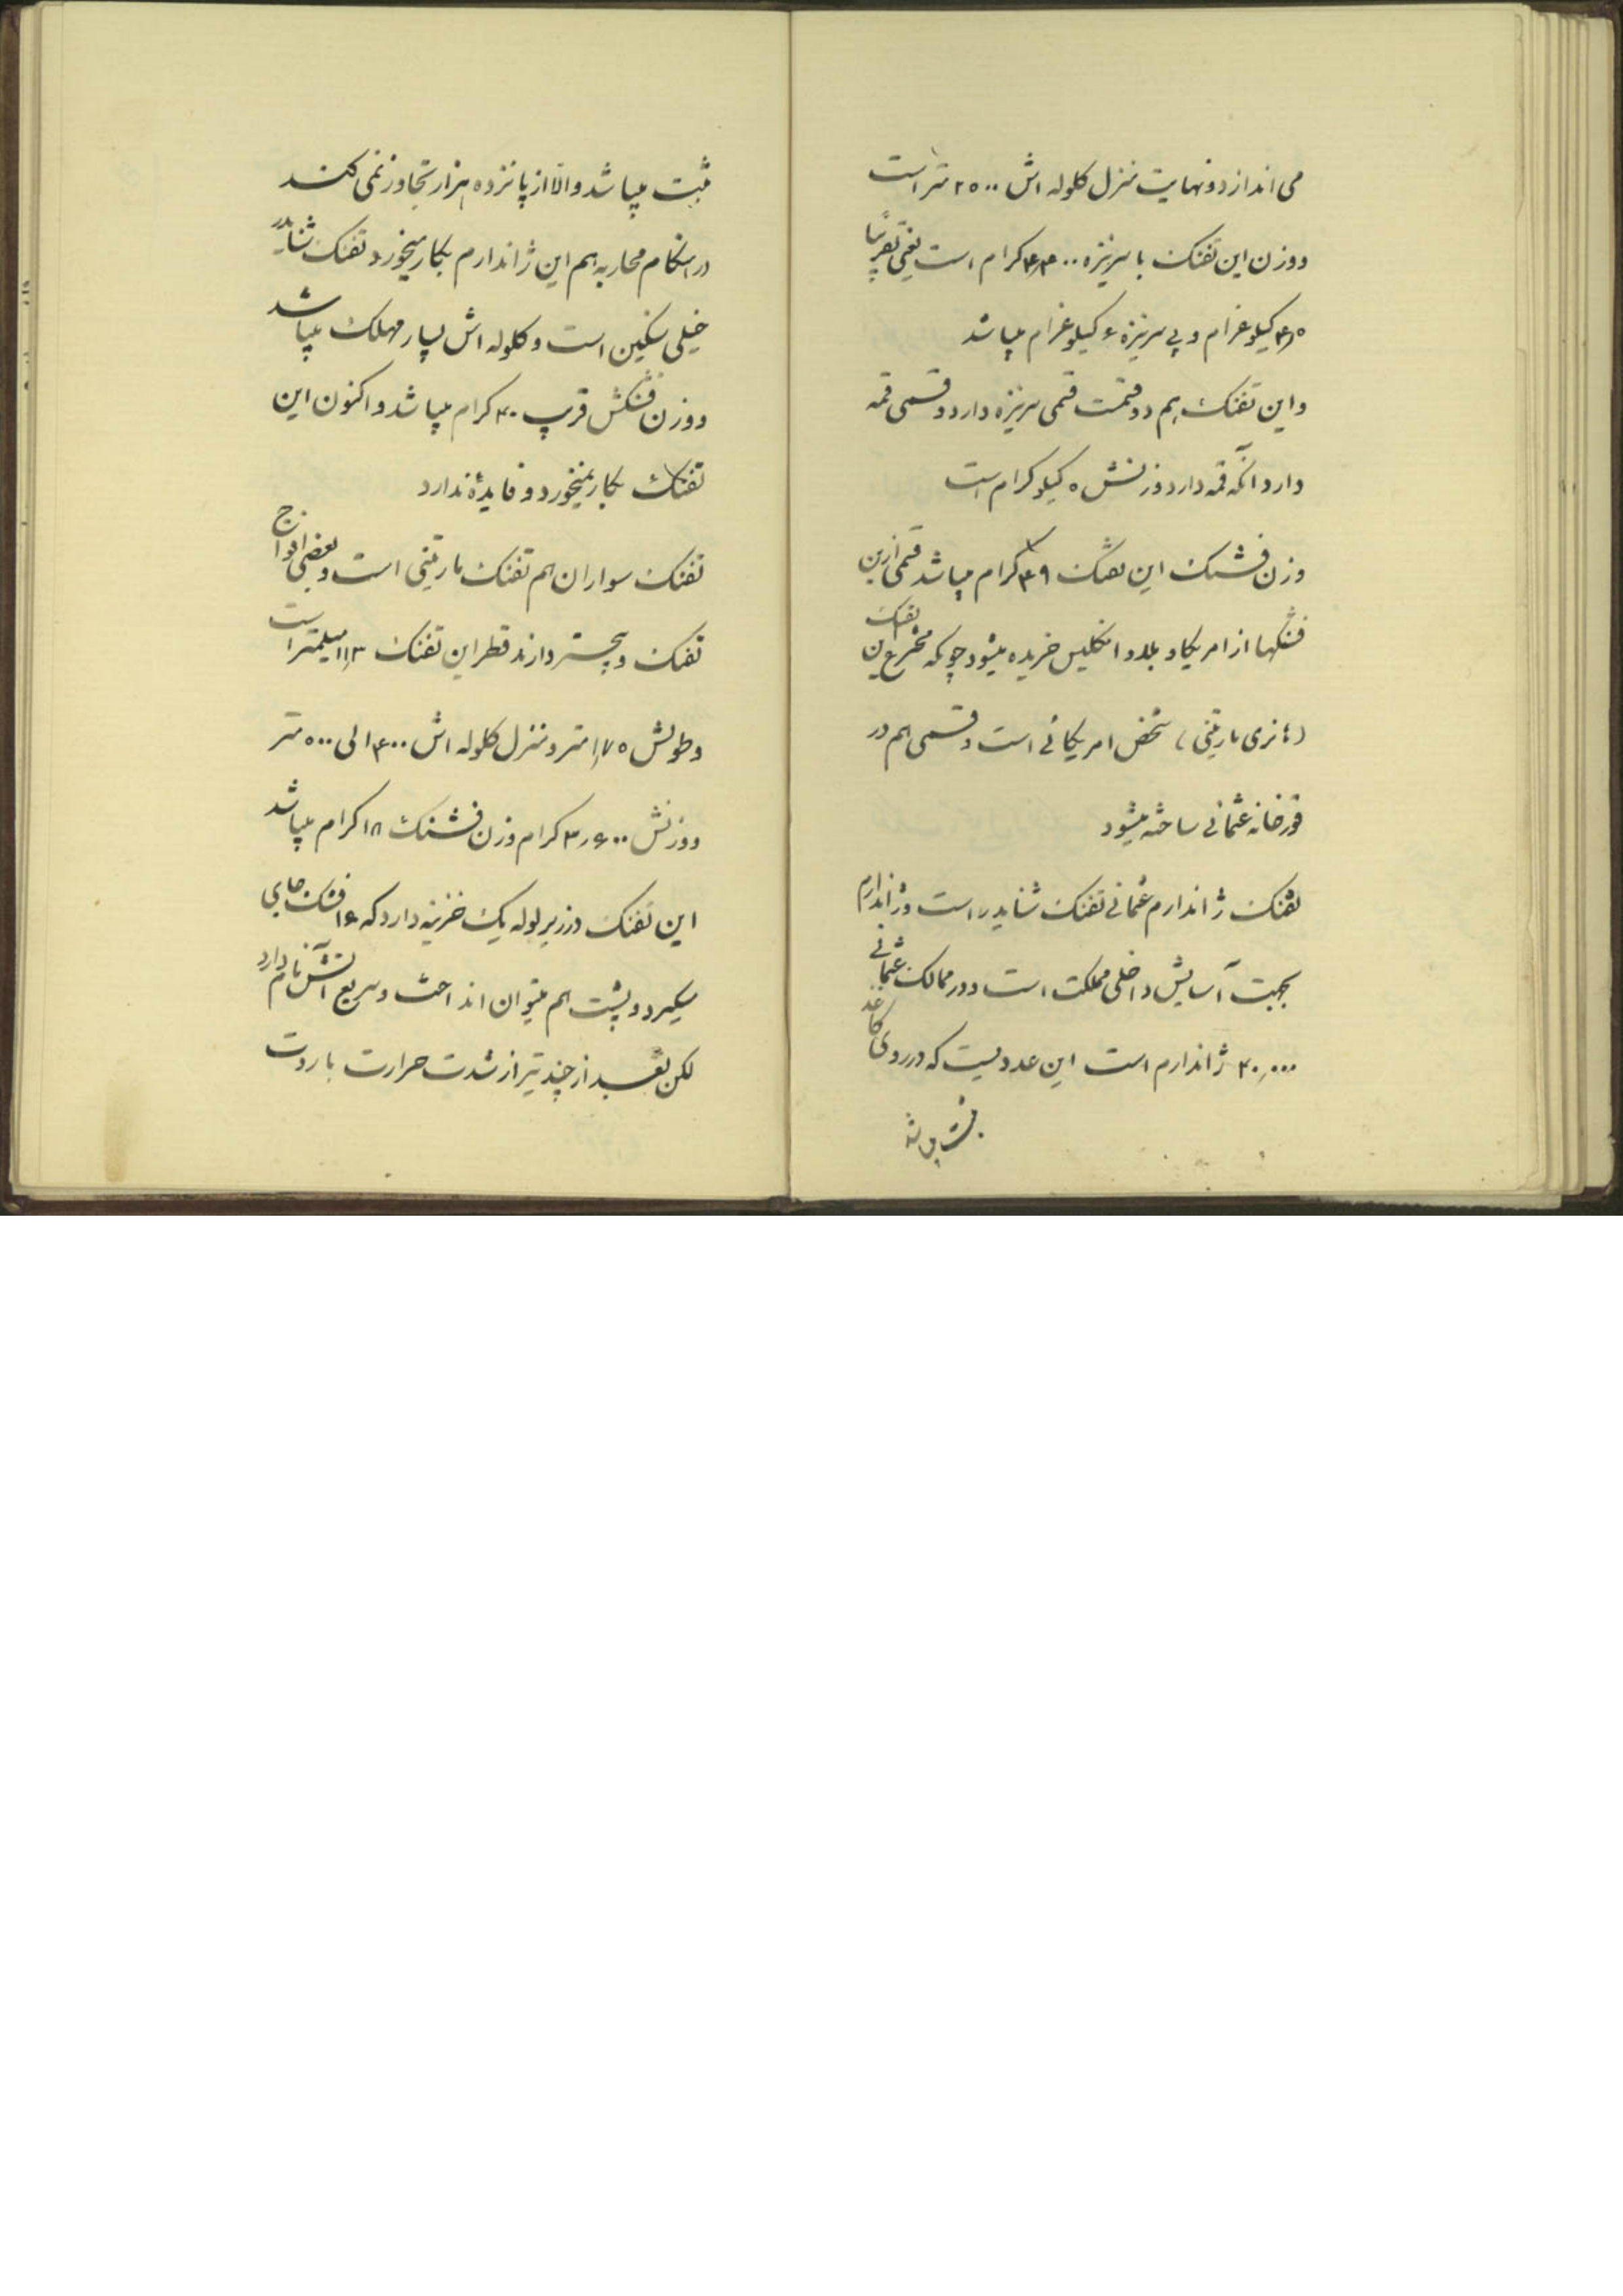 می اندازد و نهایت منزل کلوله اش ۲۵۰۰ متر است
و وزن این تفنک با سرنیزه ۴٫۴۰۰ کرام است یعنی تقریبًا
۴٫۵ کیلو غرام و بی سرنیزه ۴ کیلو غرام میباشد
و این تفنک هم دو قسمت قسمی سرنیزه دارد و قسمی قمه
دارد آنکه قمه دارد وزنش ۵ کیلو کرام است
وزن فشنک این تفنک ۴۹ کرام میباشد قسمی ازین
فشنکها از امریکا و بلاد انکلیس خریده میشود چونکه مخترع این تفنک
(هانری مارتینی) شخص امریکائی است و قسمی هم در
قورخانه عثمانی ساخته میشود
تفنک ژاندارم عثمانی تفنک شنایدر است و ژاندارم
بجهت آسایش داخلی مملکت است و در ممالک عثمانی
۴۰٫۰۰۰ ژاندارم است این عددیست که در روی کاغذ
ثبت میباشد
ثبت میباشد والا از پانزده هزار تجاوز نمی کند
در هنکام محاربه هم این ژاندارم بکار میخورد تفنک شنایدر
خیلی سنکین است و کلوله اش بسیار مهلک میباشد
و وزن فشنکش قریب ۴۰ کرام میباشد و اکنون این
تفنک بکار نمیخورد و فایدهٔ ندارد
تفنک سواران هم تفنک مارتینی است و بعضی افواج
تفنک وینچستر دارند قطر این تفنک ۱۱٫۳ میلیمتر است
و طولش ۱٫۷۵ متر و منزل کلوله اش ۴۰۰ الی ۵۰۰ متر
و وزنش ۳٫۶۰۰ کرام وزن فشنک ۱۸ کرام میباشد
این تفنک در زیر لوله یک خزینه دارد که ۱۶ فشنک جای
میکیرد و پشت هم میتوان انداخت و سریع آتش نام دارد
لکن بعد از چند تیر از شدت حرارت باروت